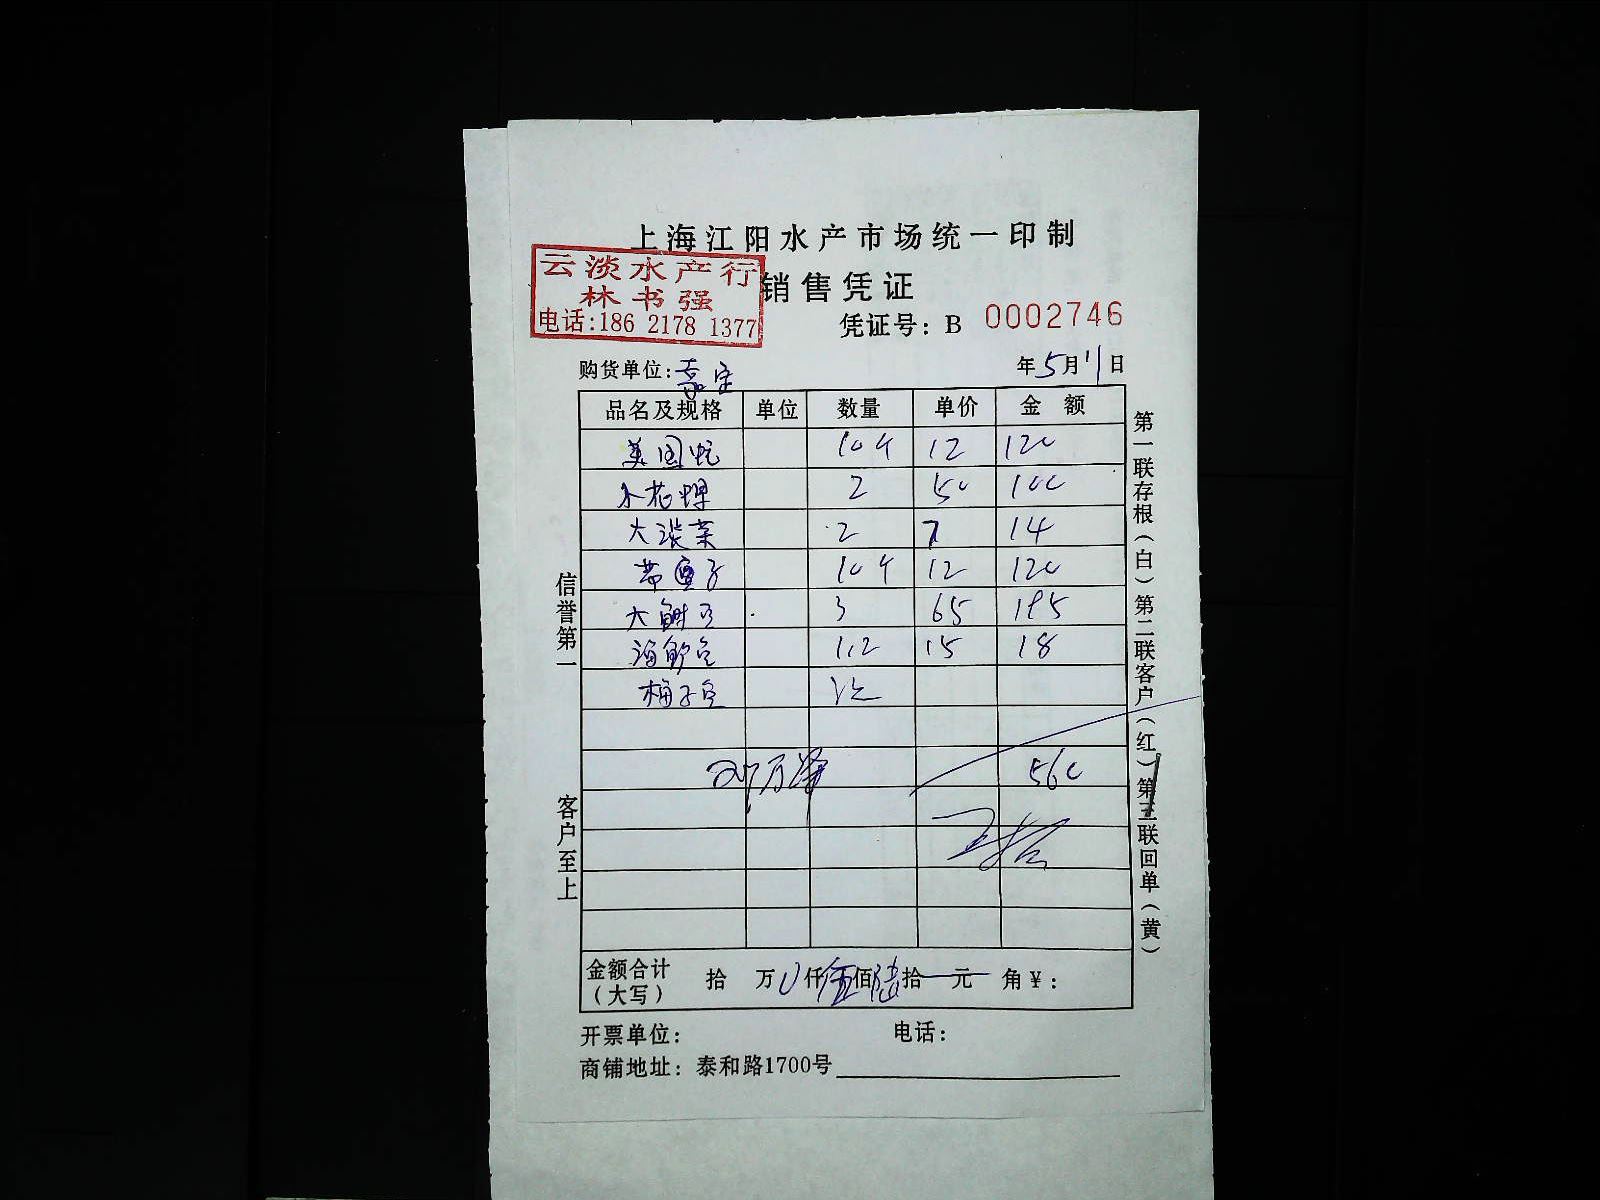 上海江阳水产市场统一印制
云淡水产行
林书强
电话:186 2178 1377
销售凭证
凭证号: B 0002746
购货单位: 年5月11日
品名及规格 单位 数量 单价 金额
美国 10个 12 120
2 50 100
大淡菜 2 7 14
带鱼 10个 12 120
大 3 65 195
海鲈鱼 1.2 15 18
梅子鱼
560
金额合计(大写) 拾 万 仟伍佰陆拾 元 角¥:
开票单位: 电话:
商铺地址: 泰和路1700号
信誉第一
客户至上
第一联存根(白)第二联客户(红)第三联回单(黄)